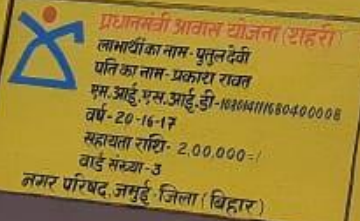 प्रधानमंत्री आवास योजना (शहरी)
लाभार्थी का नाम - पुतुल देवी
पति का नाम - प्रकाश रावत
एम.आई.एस.आई.डी -
वर्ष - 20-16-17
सहायता राशि - 2,00,000=/
वार्ड संख्या - 3
नगर परिषद, जमुई - जिला (बिहार)